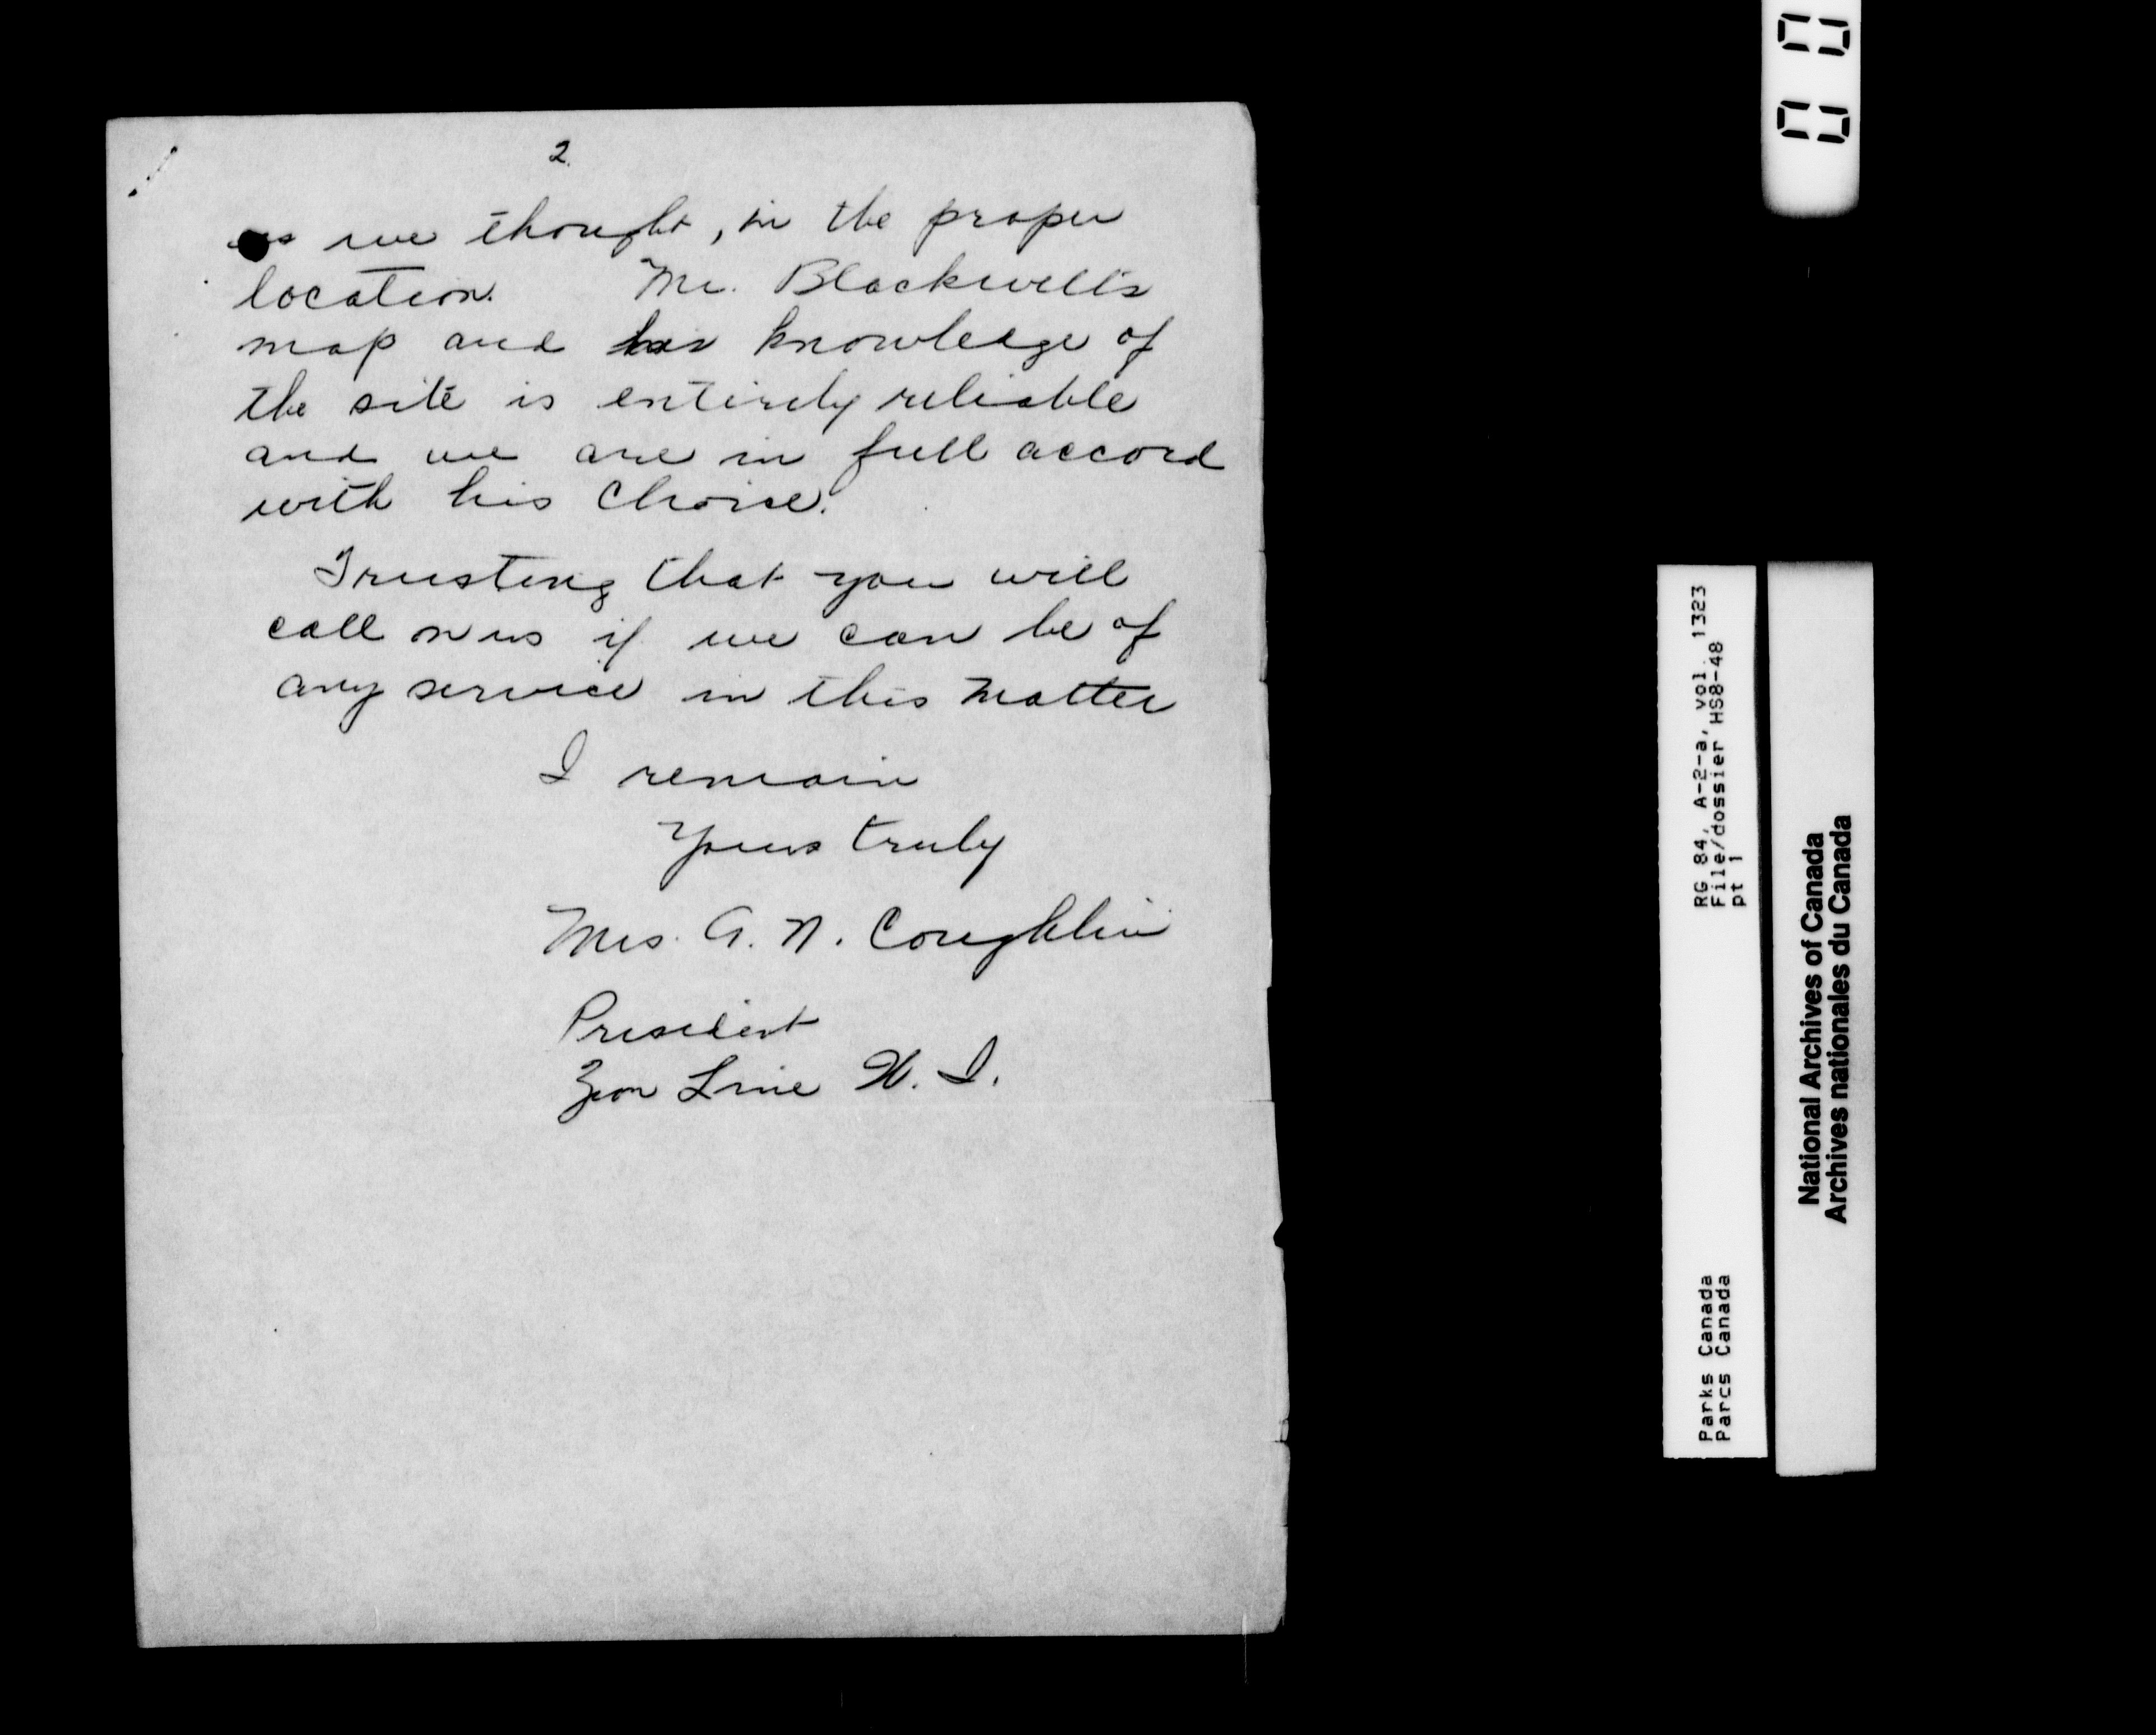 2.
as we thought, in the proper
location. Mr. Blackwell's
map and his knowledge of
the site is entirely reliable
and we are in full accord
with his choice.
Trusting that you will
call on us if we can be of
any service in this matter
I remain
Yours truly
Mrs. A. N. Coughlin
President
Zion Line W. I.
RG 84, A-2-a, vol. 1323
File/dossier HS8-48
pt 1
Parks Canada
Parcs Canada
National Archives of Canada
Archives nationales du Canada